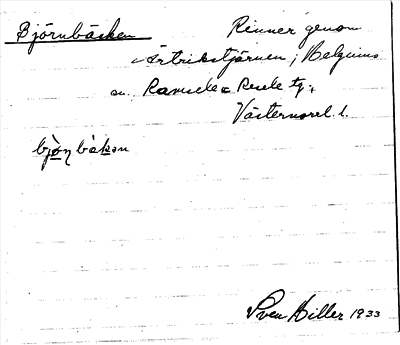 Björnbäcken Rinner genom
Ärtrikstjärnen i Helgums
sn. Ramsele o. Resele tg.,
Västernorrl. l.
bjø̀ɳbäkan
Sven Hiller 1933